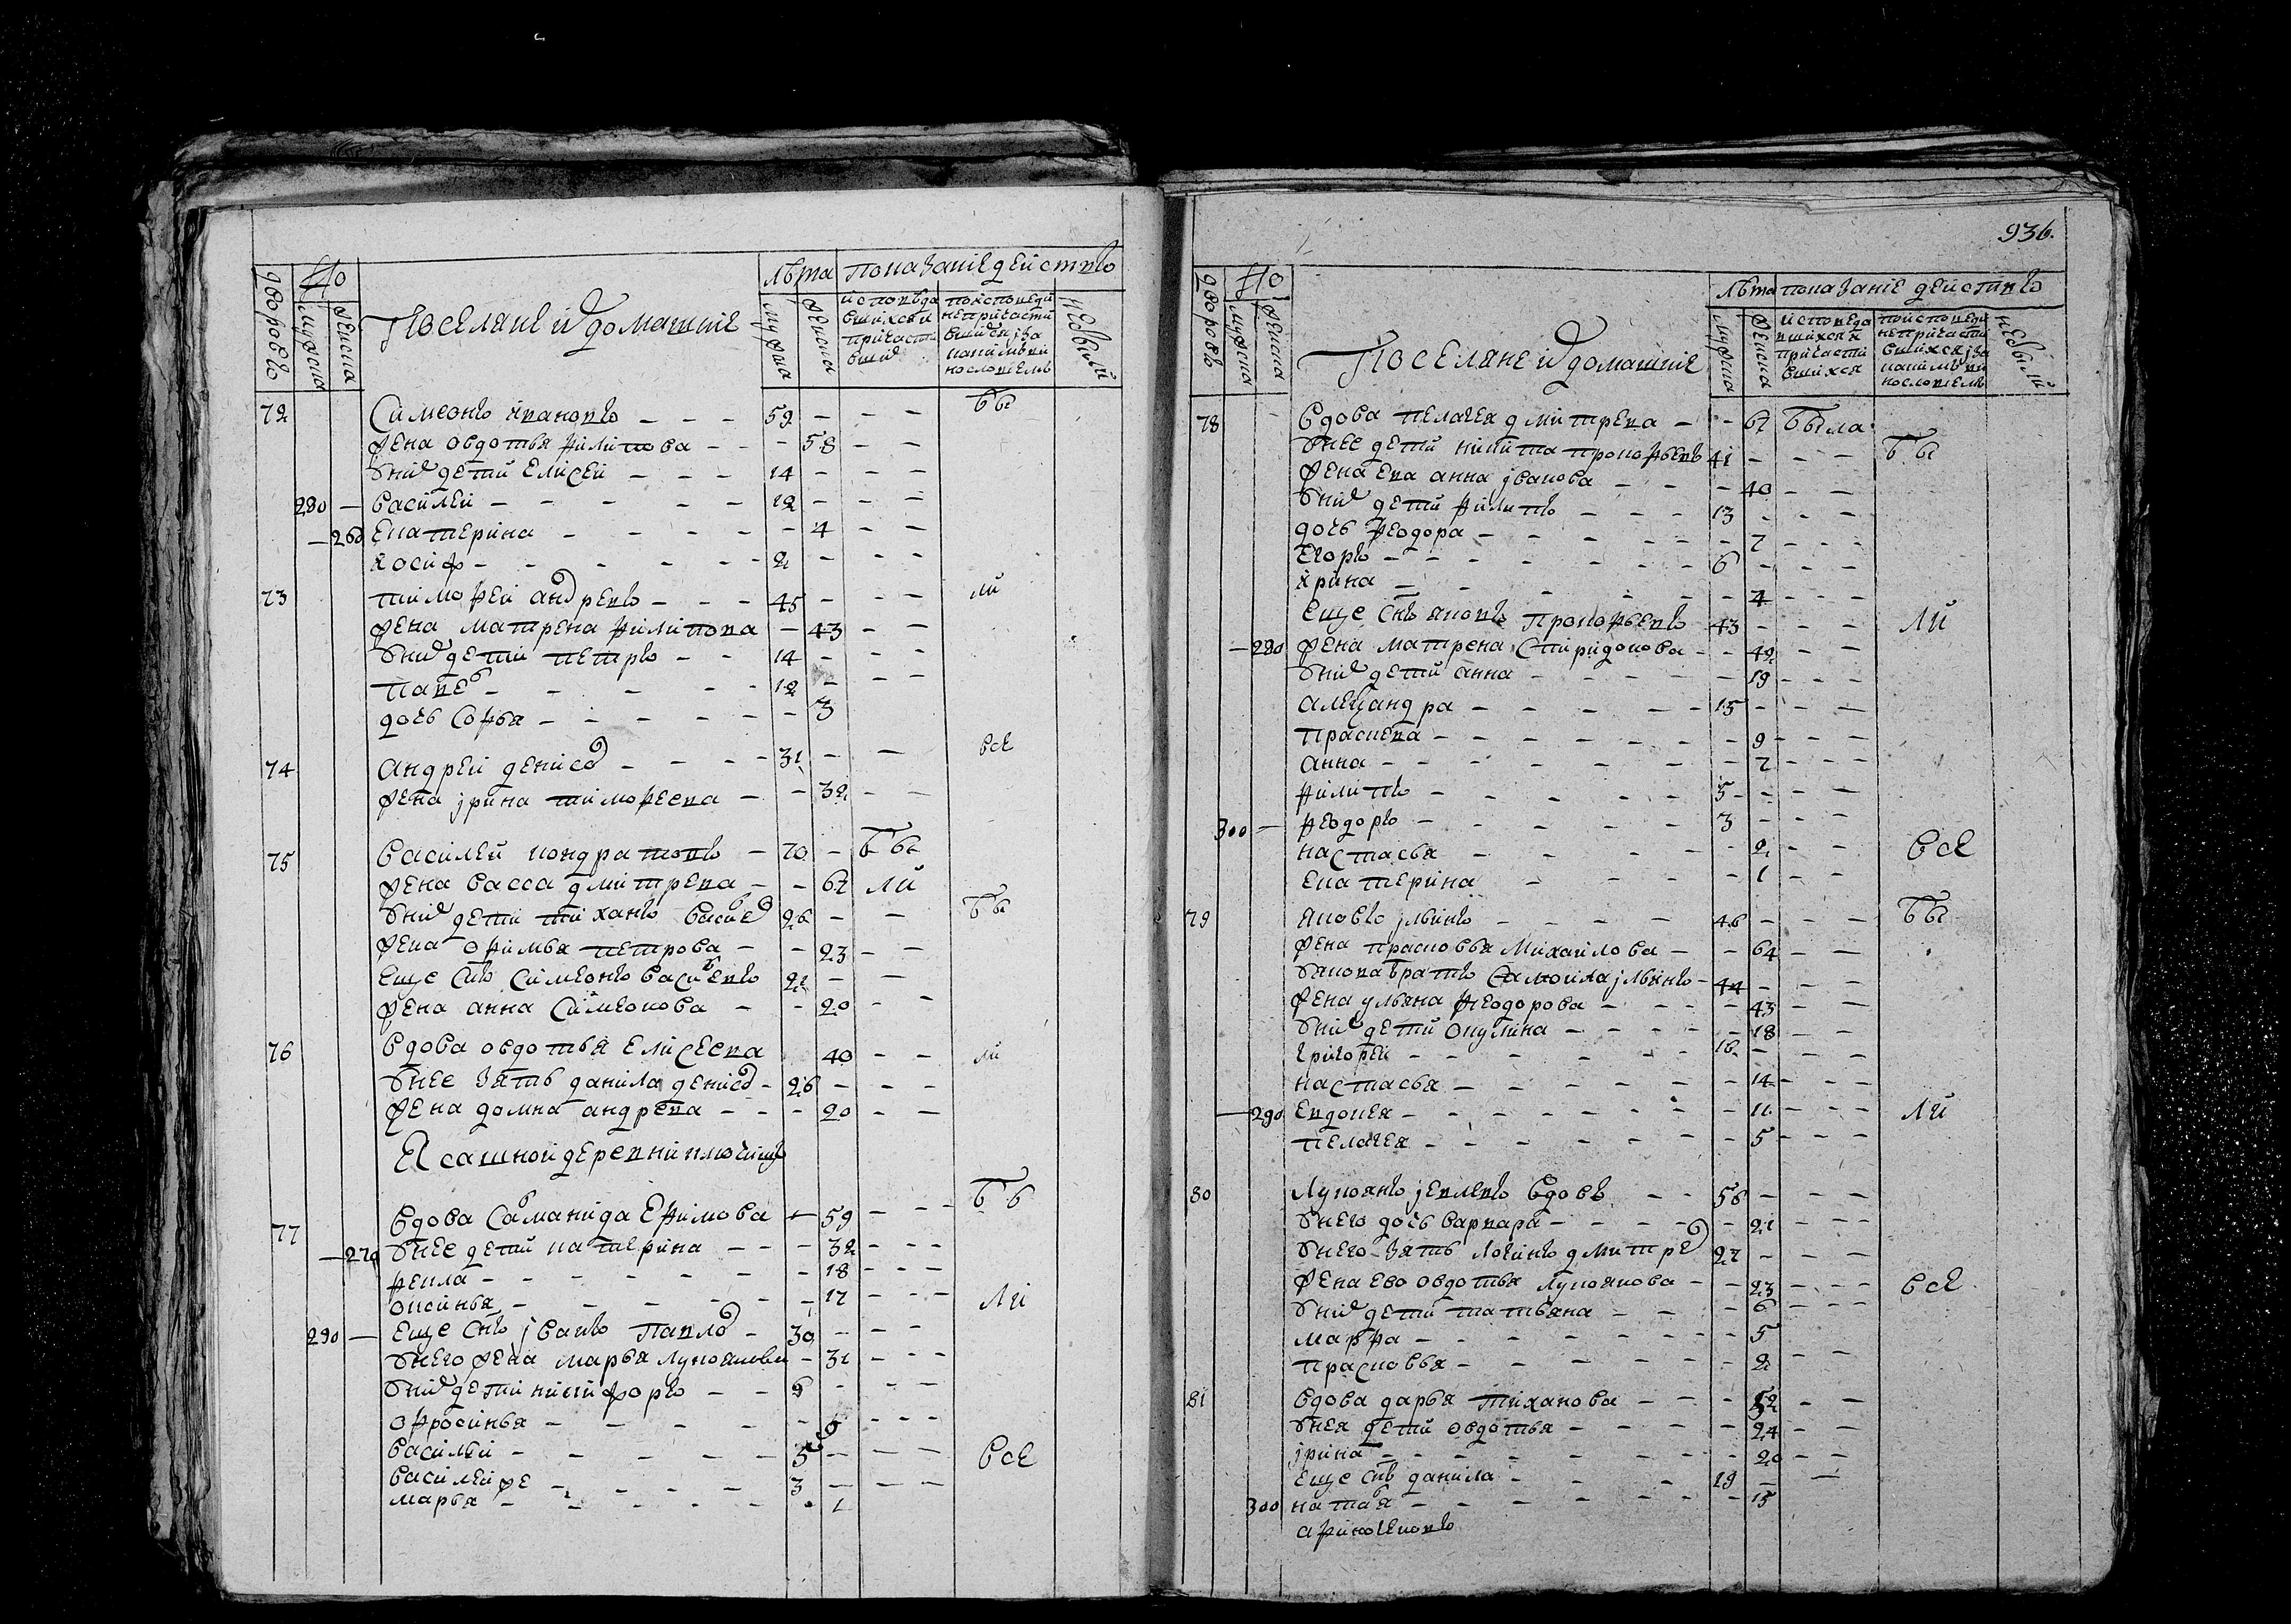 No лѣта показание действъ
дворовъ мужска женска Поселяне и домашние мужска женска исповѣдавшихся и причастившихся по исповеди не причастившихся и за каким виннословием не были
72 Симеонъ ивановъ 59 бы
жена овдотья ѳилипова 58
у них дети елисей 14
280 василей 12
260 екатерина 4
иосиф 2
73 тимоѳей андревъ 45 ли
жена матрена ѳилипова 43
у них дети петръ 14
павел 12
дочь соѳья 3
74 андрей денисов 31 все
жена ирина тимоѳеева 32
75 василей кондратовъ 70 бы
жена васса дмитрева 67 ли
у них дети тиханъ васильев 26 бы
жена офимья петрова 23
еще снъ симеонъ васильевъ 22
жена анна симеонова 20
76 вдова овдотья елисеева 40 ли
у нее зять данила денисов 26
жена домна андрева 20
77 вдова саманида ефимова 59 бы
270 у нее дети катерина 32
ѳекла 18
оксинья 17 ли
290 еще снъ иванъ павлов 30
у него жена марья лукоянова 31
у них дети никифоръ 9
офросинья
василей 3 все
василей же 3
марья 1
936.
No лѣта показание действъ
дворовъ мужска женска Поселяне и домашние мужска женска исповедавшихся и причастившихся по исповеди не причастившихся и за каким виннословием не были
78 вдова пелагея дмитрева 67 была
у нее дети никита прокоѳьевъ 41 бы
жена ева анна иванова 40
у них дети ѳилипъ 13
дочь ѳеодора 7
егоръ 6
ирина 4
еще снъ яковъ прокоѳьевъ 43 ли
280 жена матрена спиридонова 42
у них дети анна 19
александра 15
прасковя 9
анна 7
ѳилипъ 5
300 ѳеодоръ 3
настасья 2 все
екатерина 1
79 яковъ ильинъ 46 бы
жена прасковья михайлова 64
у якова братъ самойла ильинъ 44
жена ульяна ѳеодорова 43
у них дети окулина 18
григорей 16
настасья 14
290 евдокея 11 ли
пелагея 5
80 лукоянъ иевлевъ вдовъ 56
у него дочь варвара 21
у него зять логинъ дмитрев 27
жена ево овдотья лукоянова 23 все
у них дети татьяна 6
марѳа 5
прасковья 2
81 вдова дарья тиханова 52
у нея дети овдотья 24
ирина 20
еще снъ данила 19
300 наталья 15